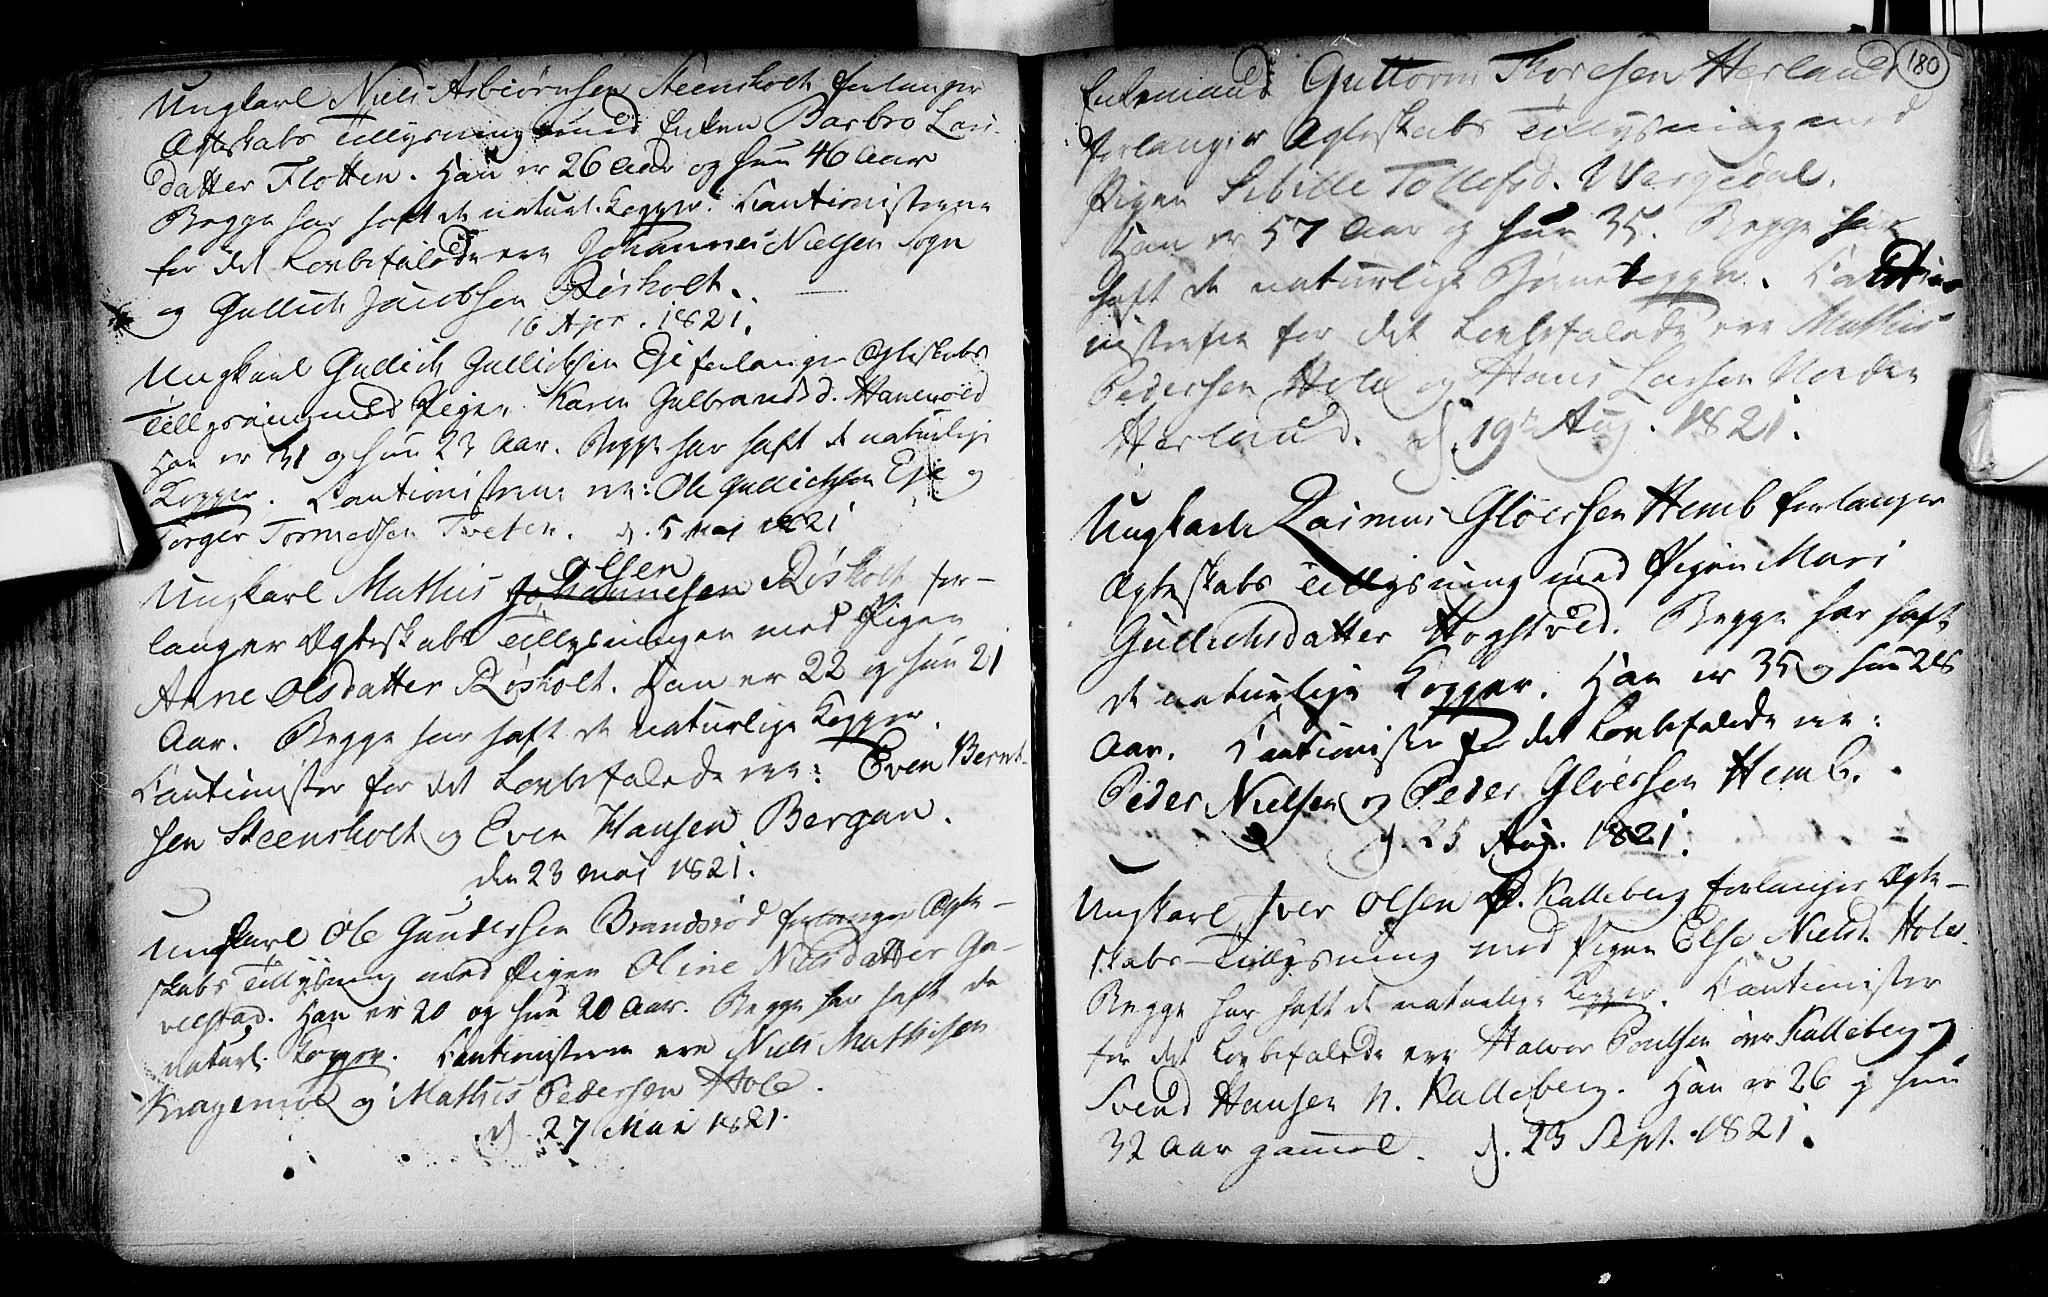 Ungkarl Niels Asbiørnsen Steensholt forlanger
Ægteskabs Tillysning med Enken Barbro Lars-
datter Flotten. Han er 26 Aar og hun 46 Aar
Begge har haft de naturl. Kopper. Cautionisterne
for det Lovbefalede ere Johannes Nielsen Sogn
og Gullich Jacobsen Røsholt.
16 Apr. 1821.
Ungkarl Gullich Gullichsen Eje forlanger Ægteskabs
Tillysning med Pigen Karen Gulbrandsd. Hanevold
Han er 31 og hun 23 Aar. Begge har haft de naturlige
Kopper. Cautionisterne ere: Ole Gullichsen Eje og
Torger Tormodsen Tveten. d. 5 Mai 1821
Olsen
Ungkarl Mathis Johannesen Røsholt for-
langer Ægteskabs Tillysningen med Pigen
Anne Olsdatter Røsholt. Han er 22 og hun 21
Aar. Begge har haft de naturlige Kopper.
Cautionister for det Lovbefalede ere: Even Bernt-
sen Steensholt og Even Hansen Bergan.
den 23 Mai 1821.
Ungkarl Ole Gundersen Brandsrød forlanger Ægte-
skabs Tillysning med Pigen Oline Nielsdatter Ga-
velstad. Han er 20 og hun 20 Aar. Begge har haft de
naturl. Kopper. Cautionisterne ere Niels Mathisen
Kragemoe og Mathis Pedersen Hole.
d. 27 Mai 1821.
180
Enkemand Guttorm Thoresen Herland
forlanger Ægteskabs Tillysning med
Pigen Sibille Tollefsd. Wergedal.
Han er 57 Aar og hun 35. Begge har
haft de naturlige Børnekopper. Cautio-
nisterne for det Lovbefalede ere Mathis
Pedersen Hole og Hans Larsen Norden
Herland. d. 19de Aug. 1821.
Ungkarl Rasmus Gloersen Hemb forlanger
Ægteskabs Tillysning med Pigen Mari
Gullichsdatter Hogstved. Begge har haft
de naturlige Kopper. Han er 35 og hun 28
Aar. Cautionister for det Lovbefalede ere:
Peder Nielsen og Peder Gloersen Hemb.
d. 25 Aug. 1821.
Ungkarl Iver Olsen Kalleberg forlanger Ægte-
skabs-Tillysning med Pigen Else Nielsd. Hole.
Begge har haft de naturlige Kopper. Cautionister
for det Lovbefalede ere Halvor Poulsen øvr Kalleberg og
Svend Hansen N. Kalleberg. Han er 26 og hun
32 Aar gammel. d. 23 Sept. 1821.